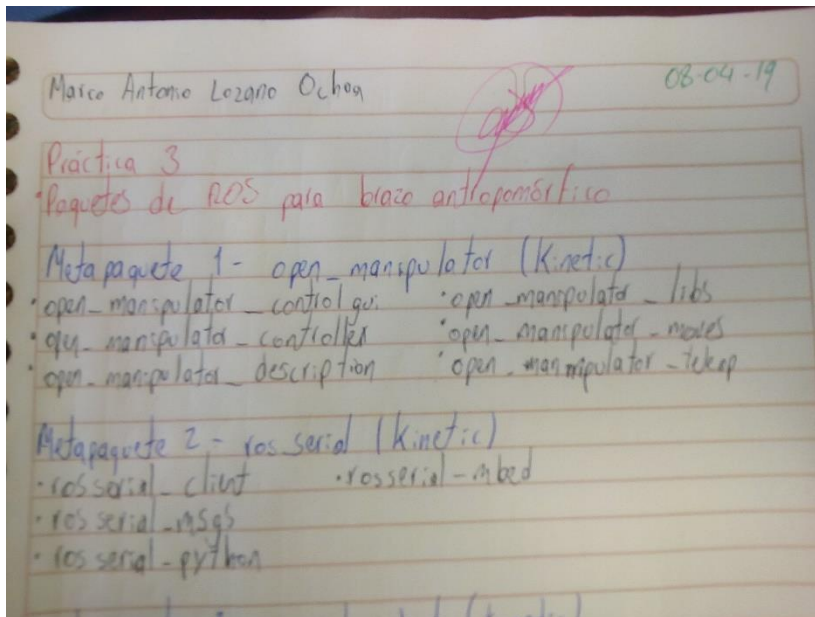 Marco Antonio Lozano Ochoa
08-04-19
Práctica 3
•Paquetes de ROS para brazo antropomórfico
Metapaquete 1- open_manipulator (Kinetic)
•open_manipulator_control gui •open_manipulator_libs
•open_manipulator_controller •open_manipulator_moves
•open_manipulator_description •open_manmipulator_teleop
Metapaquete 2- ros_serial (Kinetic)
•rosserial_client •rosserial-mbed
•ros serial_msgs
•ros serial-python